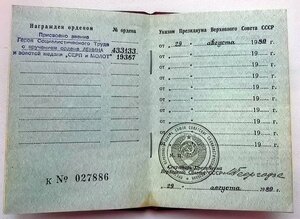 Награжден орденом
№ ордена
Присвоено звание
Героя Социалистического Труда
с вручением ордена Ленина 433433
и золотой медали „СЕРП и МОЛОТ" 19367
К № 027886
Указом Президиума Верховного Совета СССР
от 29 августа 1980 г.
от 19 г.
от 19 г.
от 19 г.
от 19 г.
от 19 г.
от 19 г.
Секретарь Президиума
Верховного Совета СССР
29 августа 1980